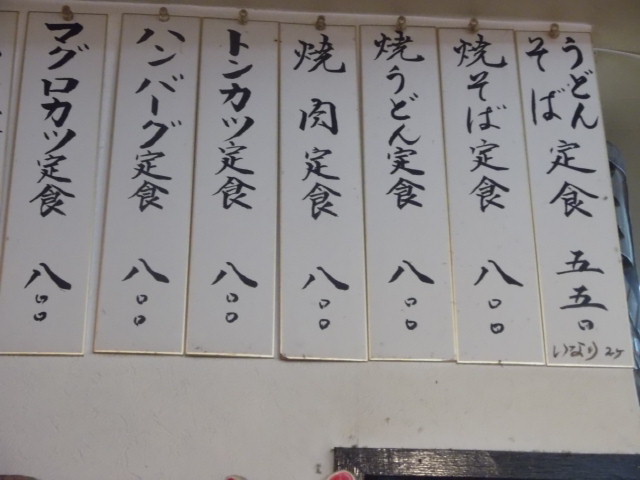 うどん
そば
定食
五五〇
いなり2ケ
焼そば定食
八〇〇
焼うどん定食
八〇〇
焼肉定食
八〇〇
トンカツ定食
八〇〇
ハンバーグ定食
八〇〇
マグロカツ定食
八〇〇